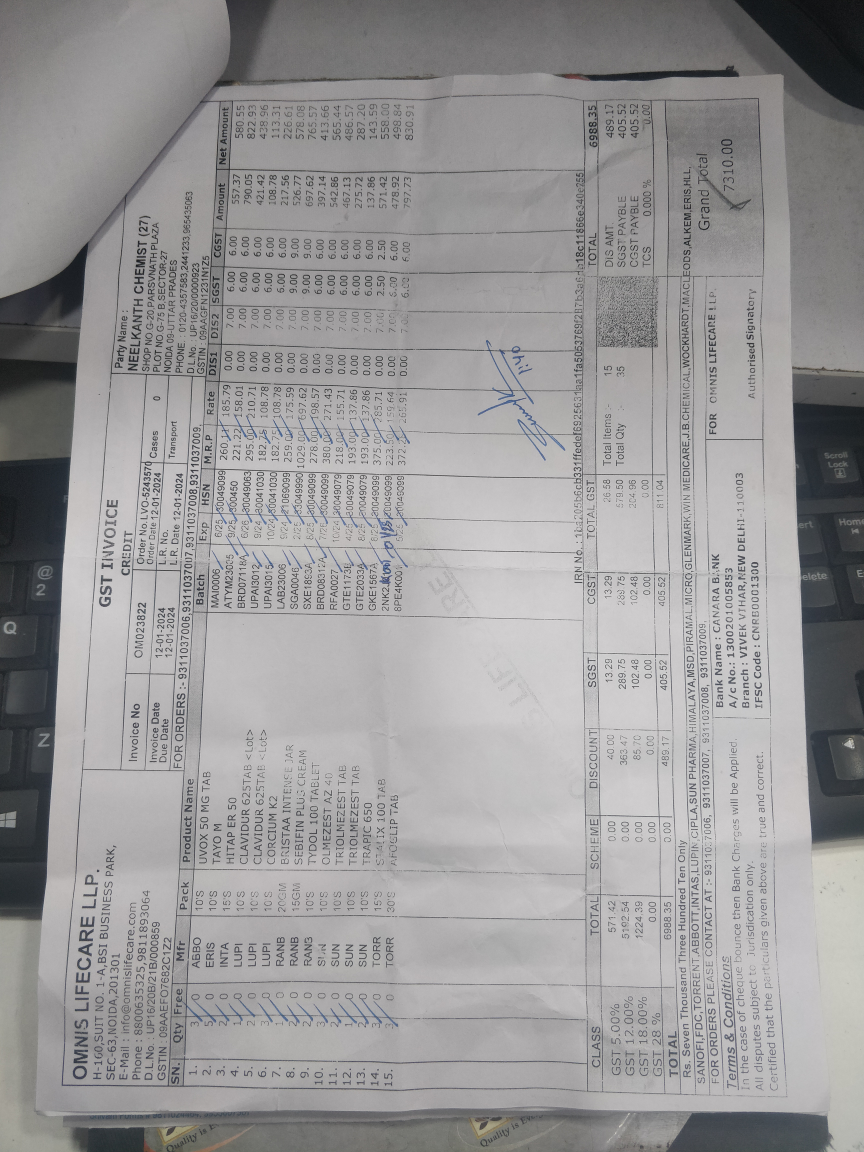 GST INVOICE
CREDIT
OMNIS LIFECARE LLP.
H-160,SUIT NO. 1-A,BSI BUSINESS PARK,
SEC-63,NOIDA,201301
E-Mail : info@omnislifecare.com
Phone : 8800635325,98111893064
D.L.No : UP16/20B/21B/000859
GSTIN : 09AAEFO7682C1Z2
Invoice No OM023822
Invoice Date 12-01-2024
Due Date 12-01-2024
Order No.LVO-5243570
Order Date 12-01-2024 Cases 0
L.R. No. Transport
L.R. Date 12-01-2024
FOR ORDERS :- 9311037006,9311037007,9311037008,9311037009
Party Name :
NEELKANTH CHEMIST (27)
SHOP NO G-20,PARSVNATH PLAZA
PLOT NO G-75 B,SECTOR-27
NOIDA 09-UTTAR PRADES
PHONE : 0120-4357583,2441233,965435063
D.L.No : UP16/20/0000923
GSTIN : 09AAGFN1231N1Z5
SN. Qty Free Mfr Pack Product Name Batch Exp HSN M.R.P Rate DIS1 DIS2 SGST CGST Amount Net Amount
1. 3 0 ABBO 10'S UVOX 50 MG TAB MAI0006 6/25 30049099 185.79 0.00 7.00 6.00 6.00 557.37 580.55
2. 5 0 ERIS 10'S TAYO M ATYM23005 9/25 300450 221.22 158.01 0.00 7.00 6.00 6.00 790.05 822.93
3. 0 INTA 15'S HITAP ER 50 BRD07118A 6/26 30049063 295.00 210.71 0.00 7.00 6.00 6.00 421.42 438.96
4. 0 LUPI 10'S CLAVIDUR 625TAB <Lot> UPAI3012 9/24 30041030 182.75 108.78 0.00 7.00 6.00 6.00 108.78 113.31
5. 0 LUPI 10'S CLAVIDUR 625TAB <Lot> UPAI3015 10/24 30041030 182.75 108.78 0.00 7.00 6.00 6.00 217.56 226.61
6. 3 0 LUPI 10'S CORCIUM K2 LAB23006 9/24 21069099 259.00 175.59 0.00 7.00 9.00 9.00 526.77 578.08
7. 0 RANB 20GM BRISTAA INTENSE JAR SGA0046 1029.00 697.62 0.00 7.00 9.00 9.00 697.62 765.57
8. 0 RANB 15GM SEBIFIN PLUS CREAM SXE1863A 278.00 198.57 0.00 7.00 6.00 6.00 397.14 413.66
9. 0 RANB 10'S TYDOL 100 TABLET 30049099 380.00 271.43 0.00 7.00 6.00 6.00 542.86 565.44
10. 0 SUN 10'S OLMEZEST AZ 40 RFA0027 10/24 30049079 155.71 0.00 7.00 6.00 6.00 467.13 486.57
11. 0 SUN 10'S TRIOLMEZEST TAB 30049079 193.00 137.86 0.00 7.00 6.00 6.00 275.72 287.20
12. 0 SUN 10'S TRIOLMEZEST TAB GTE2033A 30049079 193.00 137.86 0.00 7.00 6.00 6.00 137.86 143.59
13. 0 SUN 10'S TRAPIC 650 GKE1567A 30049099 375.00 285.71 0.00 7.00 2.50 2.50 571.42 558.00
14. 0 TORR 15'S 100 TAB 30049099 159.64 0.00 7.00 6.00 6.00 478.92 498.84
15. 0 TORR 30'S TAB 30049099 0.00 7.00 6.00 6.00 797.73 830.91
11:40
IRN No.
CLASS TOTAL SCHEME DISCOUNT SGST CGST TOTAL GST
GST 5.00% 571.42 0.00 40.00 13.29 13.29 26.58
GST 12.00% 5192.54 0.00 363.47 289.75 289.75 579.50
GST 18.00% 1224.39 0.00 85.70 102.48 102.48 204.96
GST 28 % 0.00 0.00 0.00 0.00 0.00 0.00
TOTAL 6988.35 0.00 489.17 405.52 405.52 811.04
Total Items :- 15
Total Qty :- 35
TOTAL 6988.35
DIS AMT. 489.17
SGST PAYBLE 405.52
CGST PAYBLE 405.52
TCS 0.000 % 0.00
Rs. Seven Thousand Three Hundred Ten Only
Grand Total
7310.00
SANOFI,FDC,TORRENT,ABBOTT,INTAS,LUPIN,CIPLA,SUN PHARMA,HIMALAYA,MSD,PIRAMAL,MICRO,GLENMARK,WIN MEDICARE,J.B.CHEMICAL,WOCKHARDT,MACLEODS,ALKEM,ERIS,HLL,
FOR ORDERS PLEASE CONTACT AT :- 9311037006, 9311037007, 9311037008, 9311037009.
Terms & Conditions
In the case of cheque bounce then Bank Charges will be Applied.
All disputes subject to Jurisdication only.
Certified that the particulars given above are true and correct.
Bank Name : CANARA BANK
A/c No.: 13002010058­53
Branch : VIVEK VIHAR,NEW DELHI-110003
IFSC Code : CNRB0001300
FOR OMNIS LIFECARE LLP.
Authorised Signatory